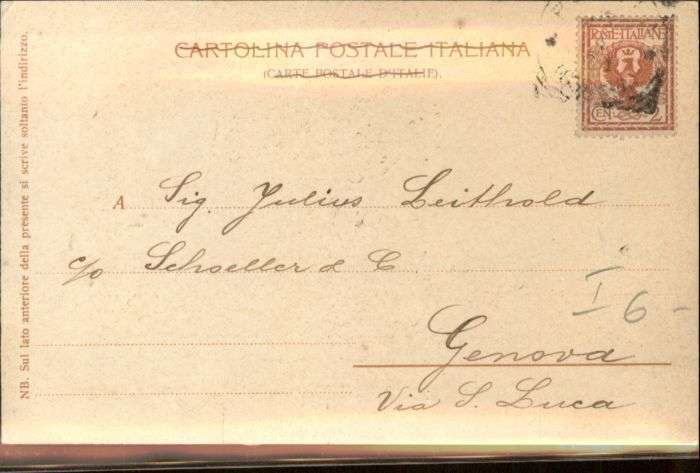 CARTOLINA POSTALE ITALIANA
(CARTE POSTALE D'ITALIE).
POSTE ITALIANE
NB. Sul lato anteriore della presente si scrive soltanto l'indirizzo.
A Sig. Julius Leithold
c/o Schoeller & C.
Genova
Via S. Luca
I 6-